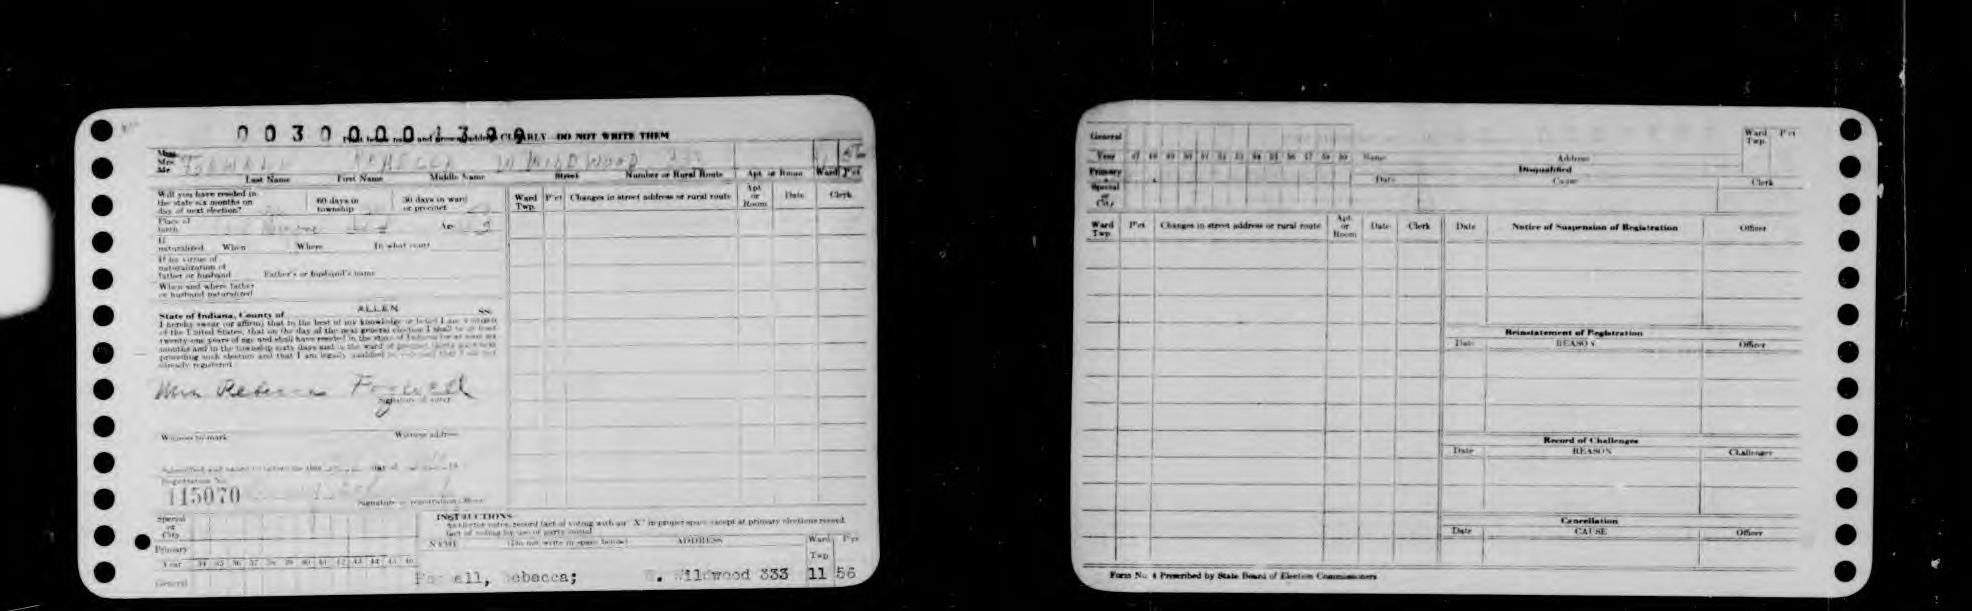 00300001399
CLEARLY DO NOT WRITE THEM
Miss
Mrs.
Mr.
REBECCA W WILDWOOD 333
Last Name First Name Middle Name Street Number or Rural Route Apt. or Room Ward P'ct
Will you have resided in
the state six months on
day of next election?
60 days in
township
30 days in ward
or precinct
Ward
Twp.
P'ct
Changes in street address or rural route
Apt.
or
Room
Date
Clerk
Place of
birth
Age
If
naturalized When Where In what court
If by virtue of
naturalization of
father or husband Father's or husband's name
When and where father
or husband naturalized
State of Indiana, County of ALLEN SS:
I hereby swear (or affirm) that to the best of my knowledge or belief I am a citizen
of the United States, that on the day of the next general election I shall be at least
twenty-one years of age and shall have resided in the state of Indiana for at least six
months and in the township sixty days and in the ward or precinct thirty days next
preceding such election and that I am legally qualified
already registered.
Mrs Rebecca Fogwell
Signature of voter
Witness to mark Witness address
Subscribed and sworn to before me this day of 19
Registration No.
115070
Signature of registration officer
Special
or
City
Primary
Year 34 35 36 37 38 39 40 41 42 43 44 45 46
General
INSTRUCTIONS
As elector votes, record fact of voting with an "X" in proper space except at primary elections record
fact of voting by use of party initial
NAME (Do not write in space below) ADDRESS
Ward
Twp
P'ct
W. Wildwood 333 11 56
General
Year 47 48 49 50 51 52 53 54 55 56 57 58 59
Primary
Special
or
City
Name Address
Ward
Twp.
P'ct
Disqualified
Date Cause Clerk
Ward
Twp.
P'ct
Changes in street address or rural route
Apt.
or
Room
Date
Clerk
Date Notice of Suspension of Registration Officer
Reinstatement of Registration
Date REASON Officer
Record of Challenges
Date REASON Challenger
Cancellation
Date CAUSE Officer
Form No. 4 Prescribed by State Board of Election Commissioners